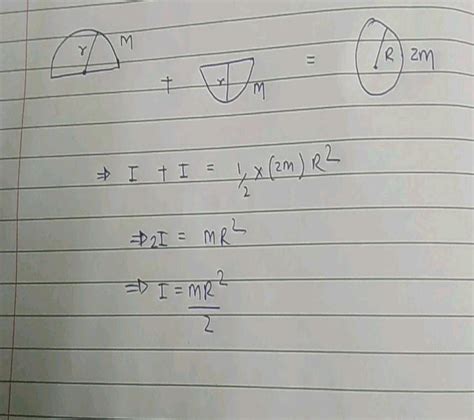 r M
+ r M = R 2M
⇒ I + I = 1/2 × (2M) R²
⇒ 2I = MR²
⇒ I = MR²/2